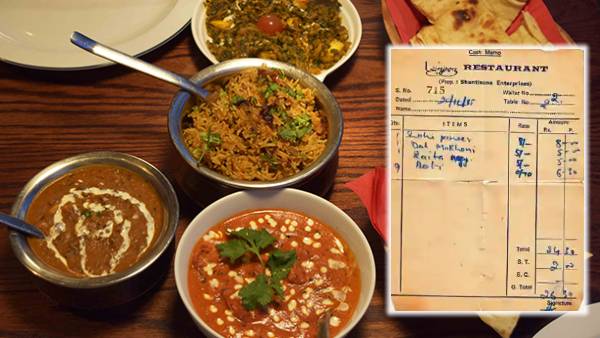 Cash Memo
RESTAURANT
(Prop. : Shantisons Enterprises)
S. No. 715 Waiter No. 2
Dated 20/12/85 Table No. 2
Name
Qty. ITEMS Rate Amount
Rs. P.
1 Shahi Paneer 8/- 8.00
1 Dal Makhani 5/- 5.00
1 Raita 5/- 5.00
9 Roti 0/70 6.30
Total 24 30
S.T. 2 00
S.C.
G. Total 26 30
Signature